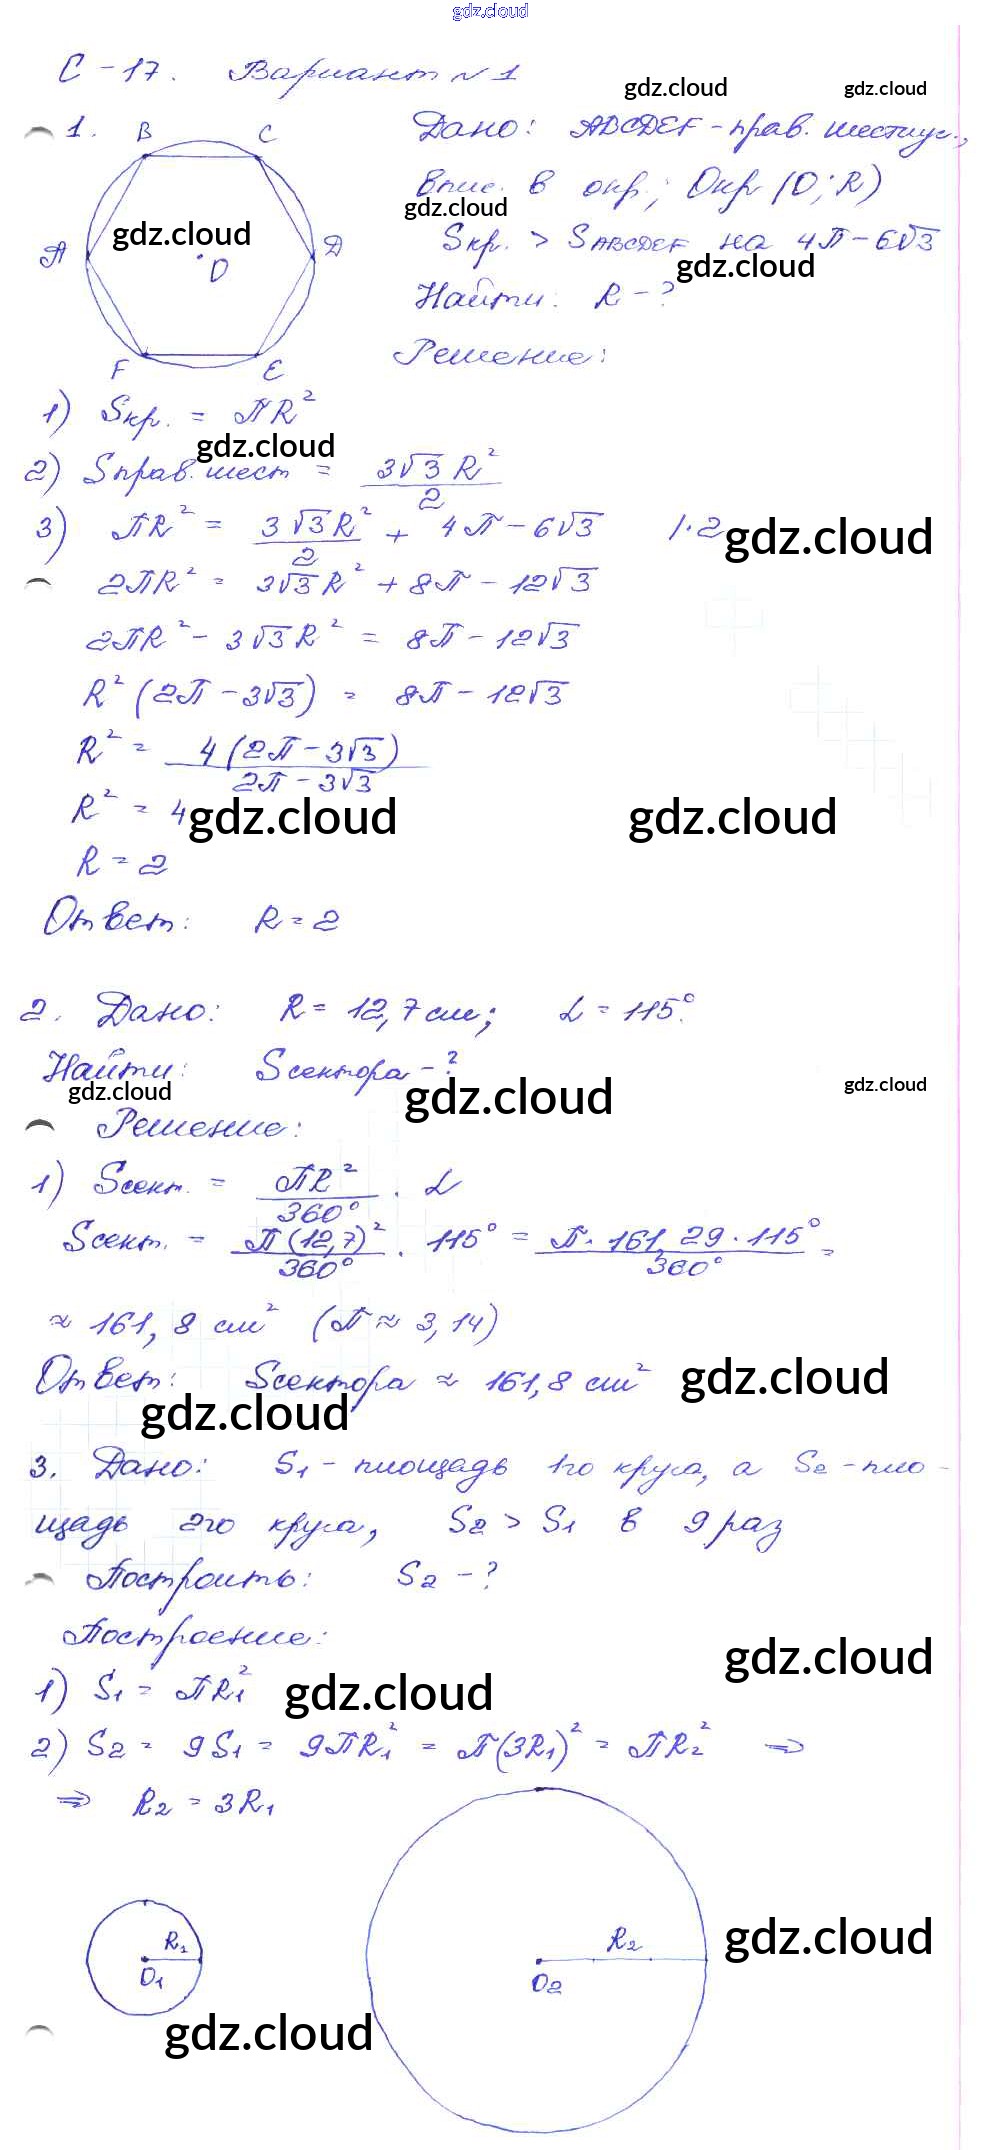 gdz.cloud
С-17. Вариант №1
gdz.cloud gdz.cloud
1. B C Дано: ABCDEF - прав. шестиуг.,
впис. в окр.; Окр (O; R)
gdz.cloud gdz.cloud
A D O Sкр. > SABCDEF на 4π-6√3
gdz.cloud
Найти: R-?
F E Решение:
1) Sкр. = πR²
gdz.cloud
2) Sправ.шест = 3√3R²/2
3) πR² = 3√3R²/2 + 4π-6√3 |·2
gdz.cloud
2πR² = 3√3R² + 8π - 12√3
2πR² - 3√3R² = 8π - 12√3
R² (2π - 3√3) = 8π - 12√3
R² = 4(2π - 3√3)/2π - 3√3
R² = 4
gdz.cloud gdz.cloud
R = 2
Ответ: R = 2
2. Дано: R = 12,7 см; α = 115°.
Найти: Sсектора-?
gdz.cloud gdz.cloud gdz.cloud
Решение:
1) Sсект. = πR²/360° · α
Sсект. = π(12,7)²/360° · 115° = π·161,29·115°/360° =
≈ 161,8 см² (π ≈ 3,14)
Ответ: Sсектора ≈ 161,8 см²
gdz.cloud gdz.cloud
3. Дано: S1 - площадь 1го круга, а S2 - пло-
щадь 2го круга, S2 > S1 в 9 раз
Построить: S2-?
Построение:
gdz.cloud
1) S1 = πR1²
gdz.cloud
2) S2 = 9S1 = 9πR1² = π(3R1)² = πR2² ⇒
⇒ R2 = 3R1
R1 R2
gdz.cloud
O1 O2
gdz.cloud